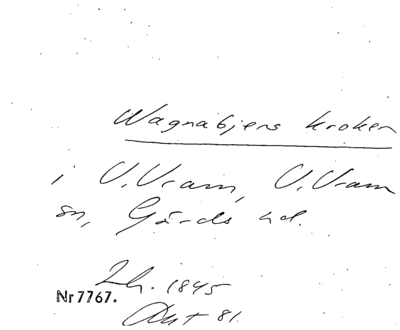 Wagnabjers kroken
i V. Vram, V. Vram
sn, Gärds hd.
Lh. 1845
Nr 7767.
Akt 81.